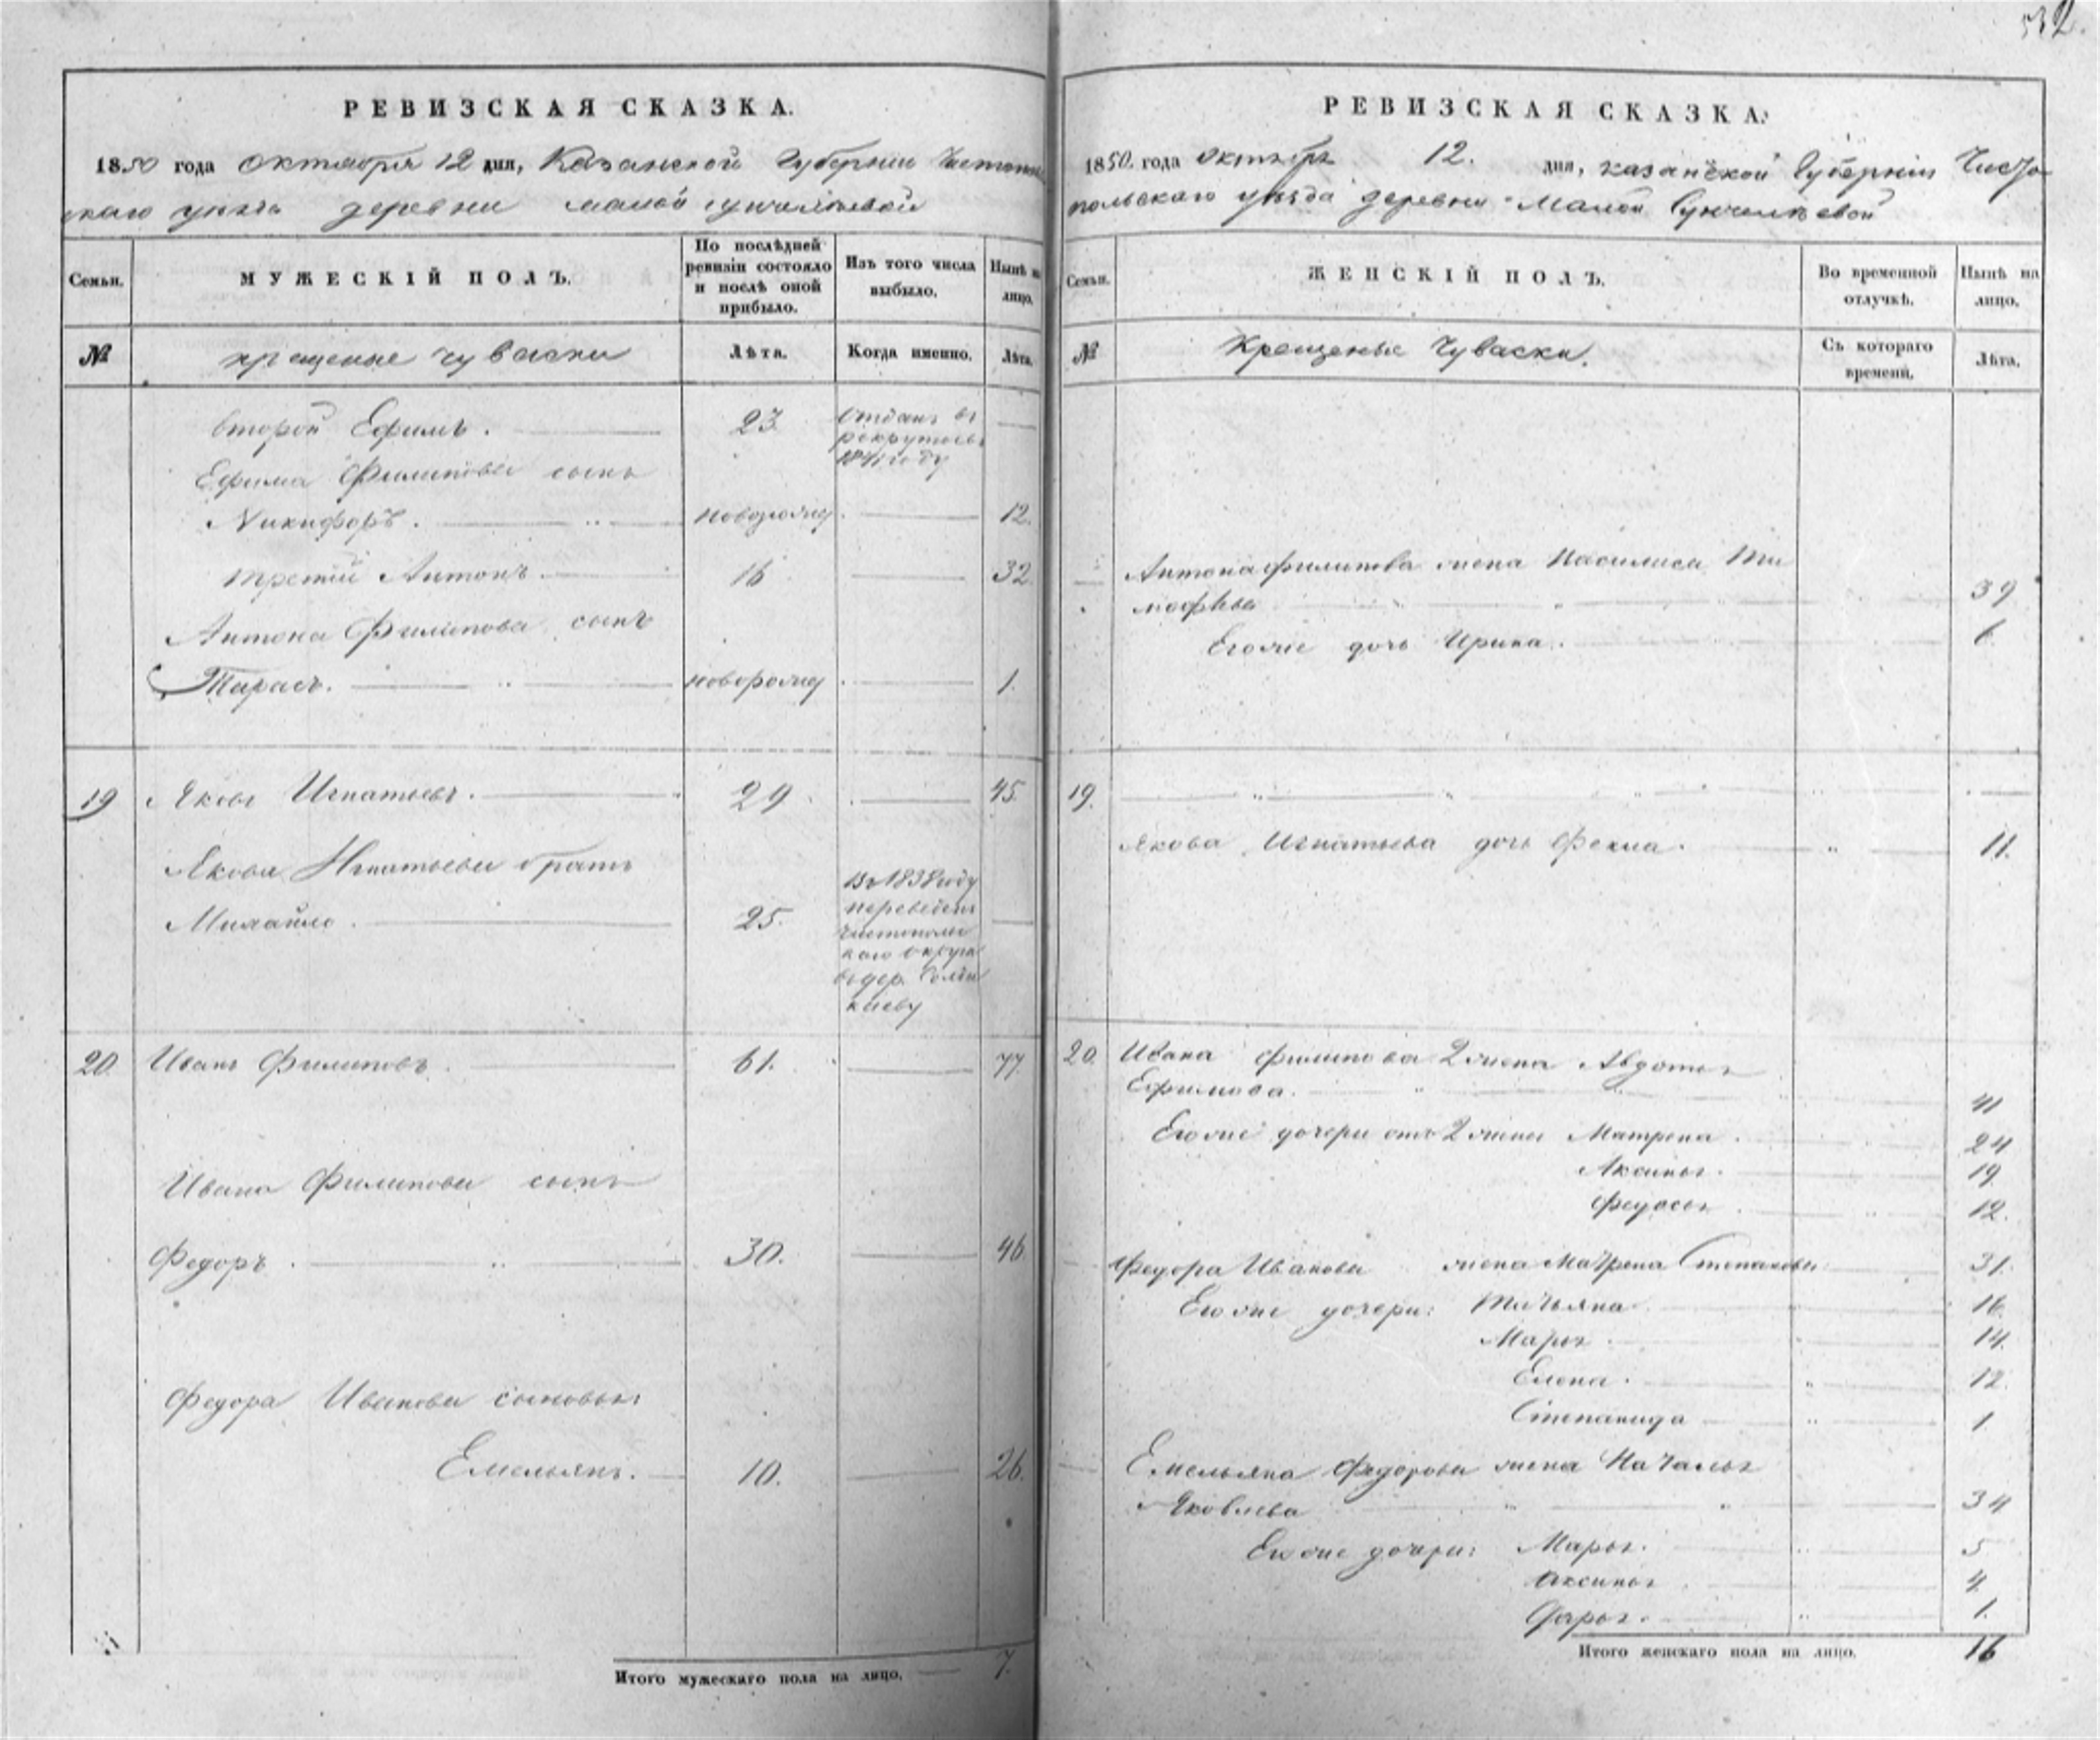 532.
РЕВИЗСКАЯ СКАЗКА.
1850 года октября 12 дня, Казанской Губернии Чистопол
скаго уѣзда деревни малой сунчелѣевой
Семьи.
МУЖЕСКІЙ ПОЛЪ.
По послѣдней ревизіи состояло и послѣ оной прибыло.
Изъ того числа выбыло.
Нынѣ на лицо.
№
крещеные чуваски
Лѣта.
Когда именно.
Лѣта.
второй Ефимъ. 23 Отданъ въ
рекруты въ
1841 году
Ефима Филипова сынъ
Никифоръ. новорожд 12.
третій Антонъ. 16 32
Антона Филипова сынъ
Тарасъ. новорожд 1.
19 Яковъ Игнатьевъ. 29 45.
Якова Игнатьева братъ
Михайло. 25. въ 1838 году
переведенъ
чистополь
каго округа
въ дер.
киеву
20. Иванъ Филиповъ. 61. 77.
Ивана Филипова сынъ
Федоръ. 30. 46
Федора Иванова сыновья:
Емельянъ. 10. 26.
Итого мужескаго пола на лицо. 7.
РЕВИЗСКАЯ СКАЗКА.
1850. года октября 12. дня, казанской Губерніи Чисто-
польскаго уѣзда деревни Малой Сунчелѣевой
Семьи.
ЖЕНСКІЙ ПОЛЪ.
Во временной отлучкѣ.
Нынѣ на лицо.
№
Крещеные Чуваски.
Съ котораго времени.
Лѣта.
Антона филипова жена Василиса Ти
мофѣва 39
Его же дочь Ирина. 6
19.
Якова Игнатьева дочь Фекла. 11.
20. Ивана филипова 2 жена Авдотья
Ефимова. 41
Его же дочери отъ 2 жены Матрена. 24
Аксинья. 19
Федосья 12.
Федора Иванова жена Матрена Степанова 31.
Его же дочери: Татьяна 16.
Марья. 14.
Елена. 12.
Степанида 1.
Емельяна Федорова жена Наталья
Яковлева 34
Его же дочери: Марья. 5
Аксинья 4
Дарья. 1.
Итого женскаго пола на лицо. 16